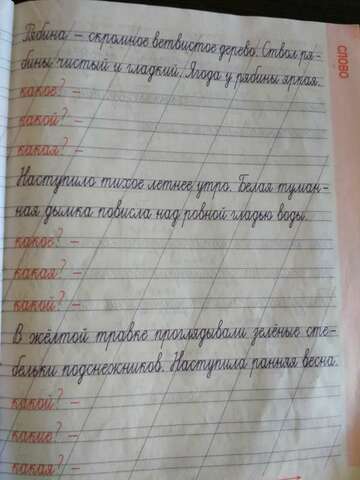 Рябина – скромное ветвистое дерево. Ствол ря-
бины чистый и гладкий. Ягода у рябины яркая.
какое? –
какой? –
какая? –
Наступило тихое летнее утро. Белая туман-
ная дымка повисла над ровной гладью воды.
какое? –
какая? –
какой? –
В жёлтой травке проглядывали зелёные сте-
бельки подснежников. Наступила ранняя весна.
какой? –
какие? –
какая? –
СЛОВО